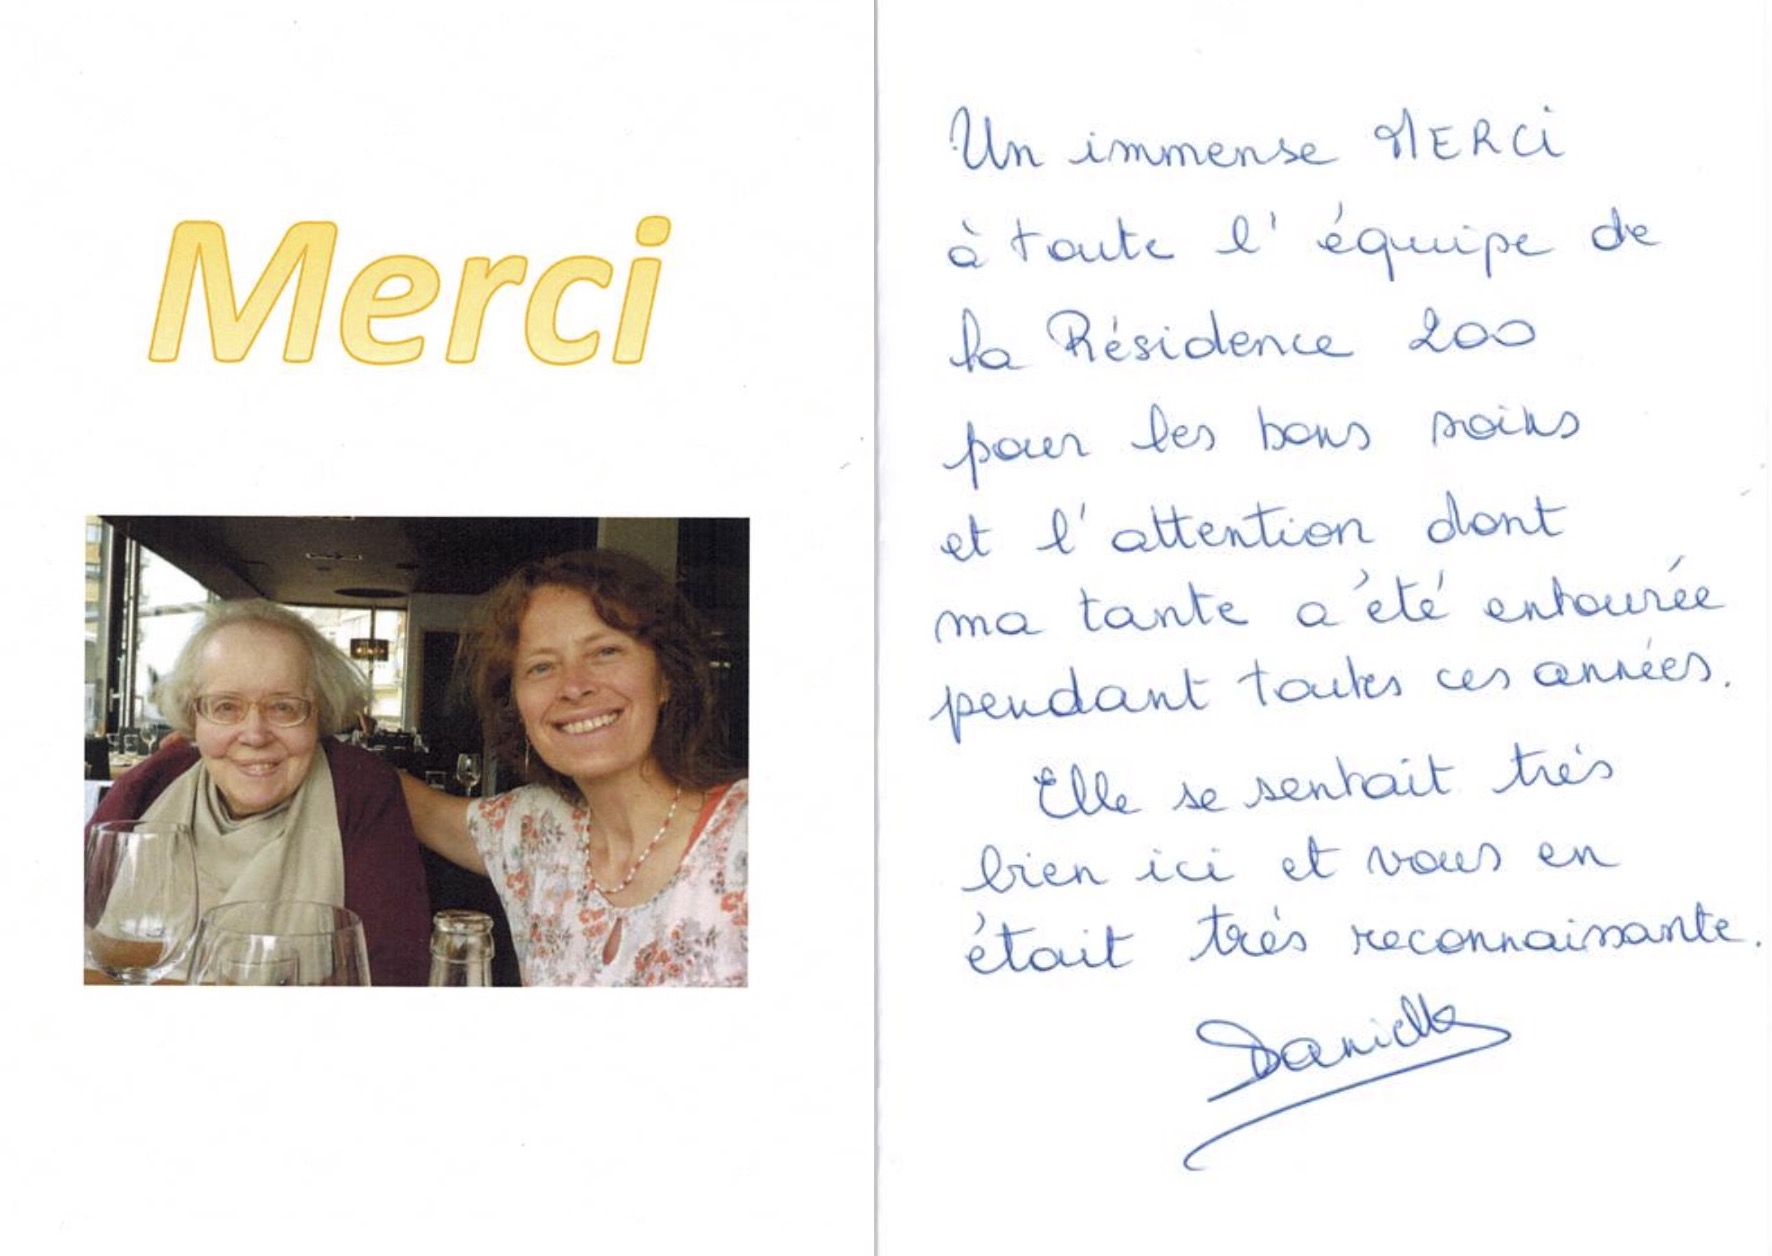 Merci
Un immense MERCi
à toute l'équipe de
la Résidence 200
pour les bons soins
et l'attention dont
ma tante a été entourée
pendant toutes ces années.
Elle se sentait très
bien ici et vous en
était très reconnaissante.
Danielle